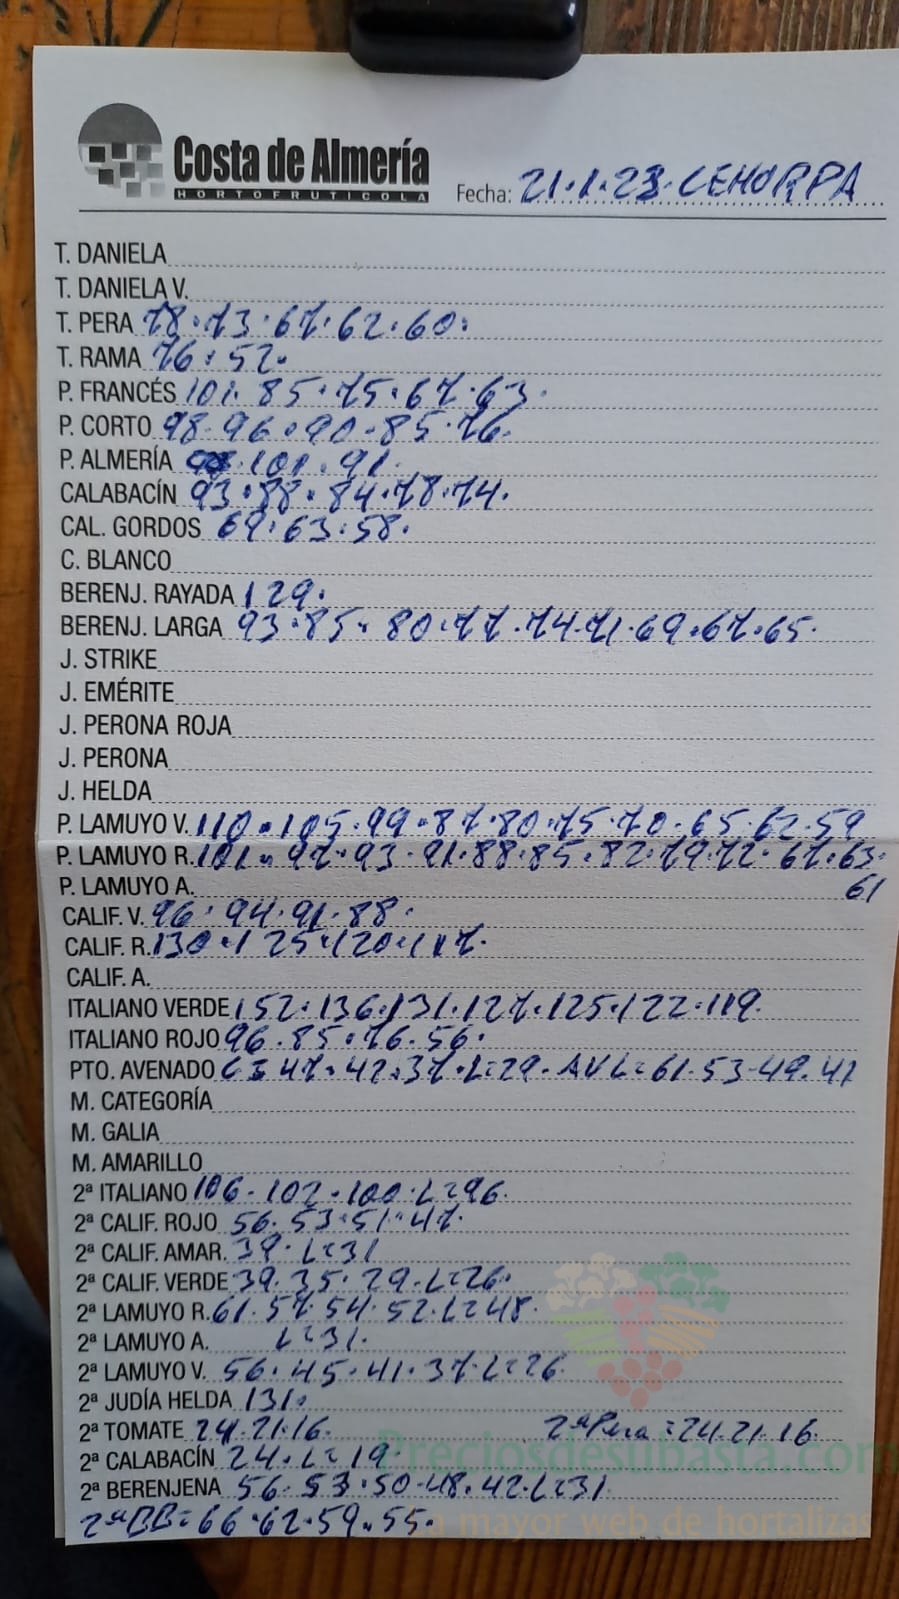 Costa de Almería
HORTOFRUTICOLA
Fecha: 21.1.23. CEHORPA
T. DANIELA
T. DANIELA V.
T. PERA 78.73.67.62.60.
T. RAMA 76.52.
P. FRANCÉS 101.85.75.67.63.
P. CORTO 98.96.90.85.76.
P. ALMERÍA 101.91.
CALABACÍN 93.88.84.78.74.
CAL. GORDOS 69.63.58.
C. BLANCO
BERENJ. RAYADA 129.
BERENJ. LARGA 93.85.80.77.74.71.69.67.65.
J. STRIKE
J. EMÉRITE
J. PERONA ROJA
J. PERONA
J. HELDA
P. LAMUYO V. 110.105.99.87.80.75.70.65.62.59
P. LAMUYO R. 101.97.93.91.88.85.82.79.72.67.63.
P. LAMUYO A. 61
CALIF. V. 96.94.91.88.
CALIF. R. 130.125.120.117.
CALIF. A.
ITALIANO VERDE 152.136.131.127.125.122.119.
ITALIANO ROJO 96.85.76.56.
PTO. AVENADO 47.42.37.L=29. AVL=61.53.49.47
M. CATEGORÍA
M. GALIA
M. AMARILLO
2ª ITALIANO 106.102.100.L=96.
2ª CALIF. ROJO 56.53.51.47.
2ª CALIF. AMAR. 39.L=31
2ª CALIF. VERDE 39.35.29.L=26.
2ª LAMUYO R. 61.57.54.52.L=48.
2ª LAMUYO A. L=31.
2ª LAMUYO V. 56.45.41.37.L=26.
2ª JUDÍA HELDA 131.
2ª TOMATE 24.21.16. 2ª Pera = 24.21.16.
2ª CALABACÍN 24.L=19.
Preciosdesubasta.com
2ª BERENJENA 56.53.50.48.42.L=31
2ª BB = 66.62.59.55.
a mayor web de hortalizas